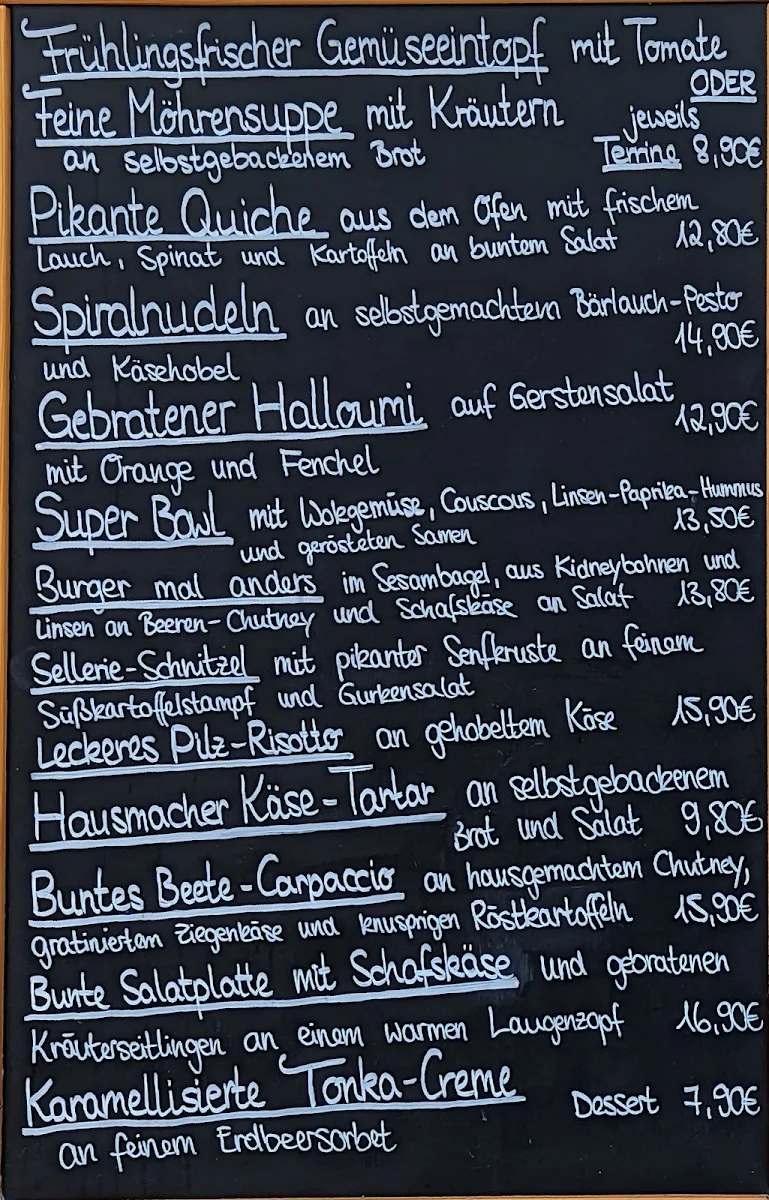 Frühlingsfrischer Gemüseeintopf mit Tomate
ODER
Feine Möhrensuppe mit Kräutern jeweils
an selbstgebackenem Brot Terrine 8,90€
Pikante Quiche aus dem Ofen mit frischem
Lauch, Spinat und Kartoffeln an buntem Salat 12,80€
Spiralnudeln an selbstgemachtem Bärlauch-Pesto
14,90€
und Käsehobel
Gebratener Halloumi auf Gerstensalat
12,90€
mit Orange und Fenchel
Super Bowl mit Wokgemüse, Couscous, Linsen-Paprika-Hummus
13,50€
und gerösteten Samen
Burger mal anders im Sesambagel, aus Kidneybohnen und
Linsen an Beeren-Chutney und Schafskäse an Salat 13,80€
Sellerie-Schnitzel mit pikanter Senfkruste an feinem
Süßkartoffelstampf und Gurkensalat
Leckeres Pilz-Risotto an gehobeltem Käse 15,90€
Hausmacher Käse-Tartar an selbstgebackenem
Brot und Salat 9,80€
Buntes Beete-Carpaccio an hausgemachtem Chutney,
gratiniertem Ziegenkäse und knusprigen Röstkartoffeln 15,90€
Bunte Salatplatte mit Schafskäse und gebratenen
Kräuterseitlingen an einem warmen Laugenzopf 16,90€
Karamellisierte Tonka-Creme
Dessert 7,90€
an feinem Erdbeersorbet